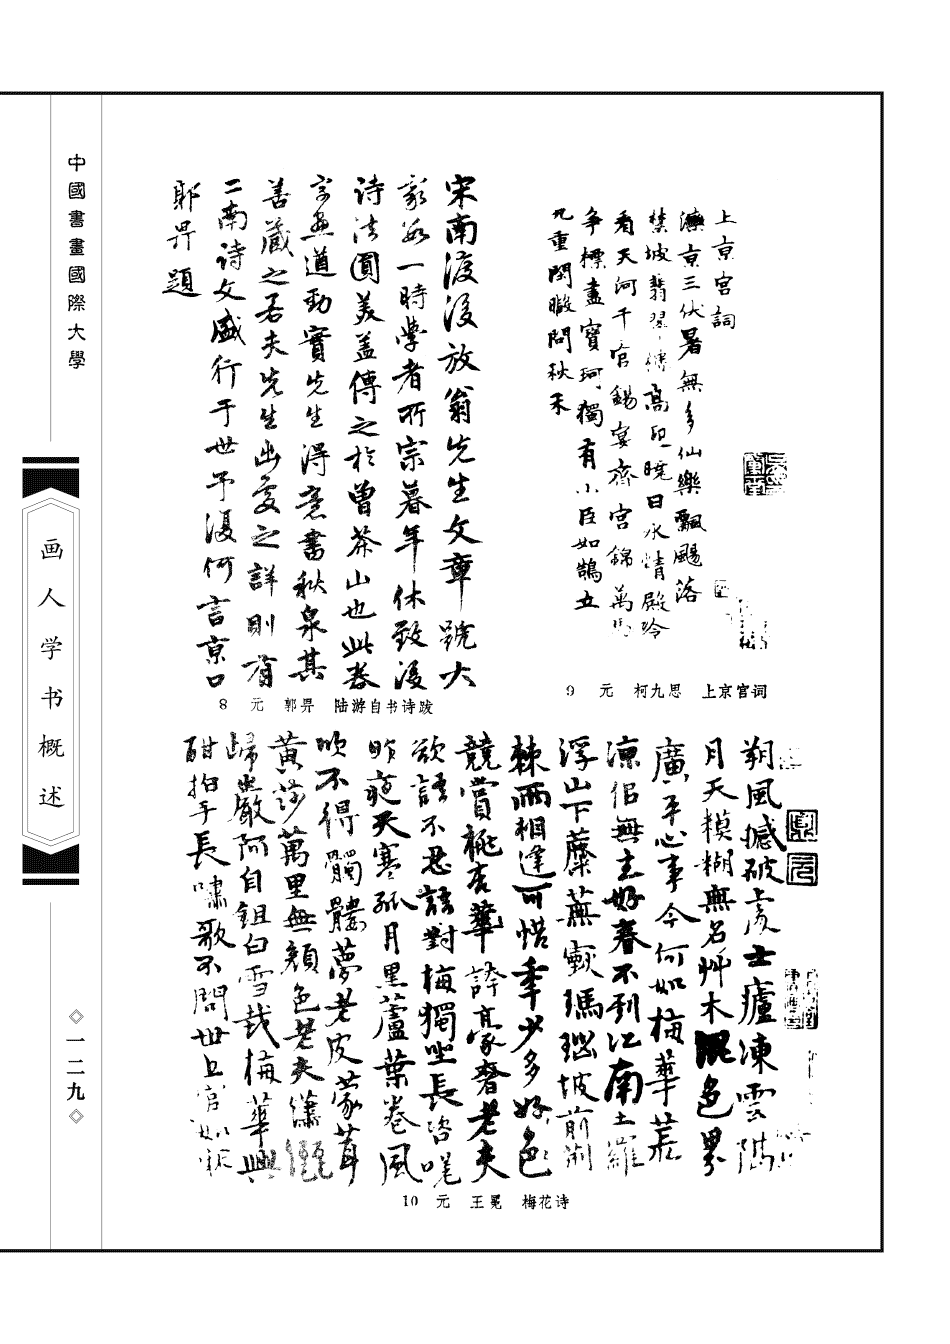 中國書畫國際大學
画人学书概述
一二九
上京宮詞
灤京三伏暑無多仙樂飄颺落
禁坡翡翠傳高卧曉日水情殿冷
看天河千官錫宴齊宮錦萬馬
爭標盡寶珂獨有小臣如鵠立
九重閑暇問秋禾
9 元 柯九思 上京宫词
宋南渡後放翁先生文章號大
家故一時學者所宗暮年休致後
詩法圓美蓋傳之於曾茶山也此卷
字畫遒勁實先生得意書秋泉其
善藏之若夫先生出處之詳則有
二南詩文盛行于世予復何言京口
郭畀題
8 元 郭畀 陆游自书诗跋
朔風撼破處士廬凍雲隔
月天模糊無名艸木混色界
廣平心事今何如梅華荒
涼佀無主好春不到江南土羅
浮山下藤蕪瑪瑙坡前荊
棘雨相逢可惜年少多好色
競賞桃杏華誇豪奢老夫
欲語不忍語對梅獨坐長咨嗟
昨夜天寒孤月黑蘆葉卷風
吹不得髑髏夢老皮蒙茸
黃莎萬里無顏色老夫瀟灑
歸巖阿自鉏白雪栽梅華興
酣拍手長嘯歌不問世上官如
10 元 王冕 梅花诗